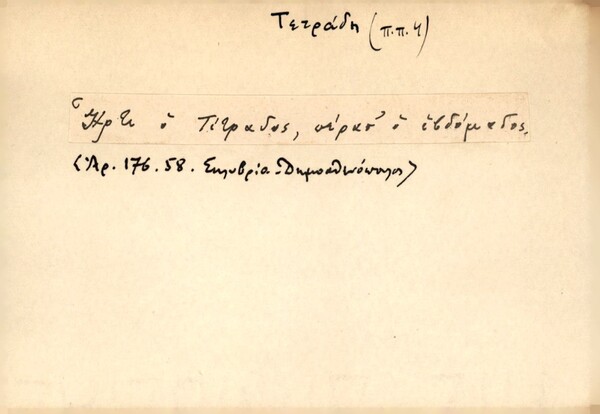 Τετράδη (π.π. 4)
Ἦρτε ὁ Τέτραδος, πέρασ' ὁ ἑβδόμαδος.
(Ἀρ. 176. 58. Σηλυβρία - Δημοσθενόπουλος)